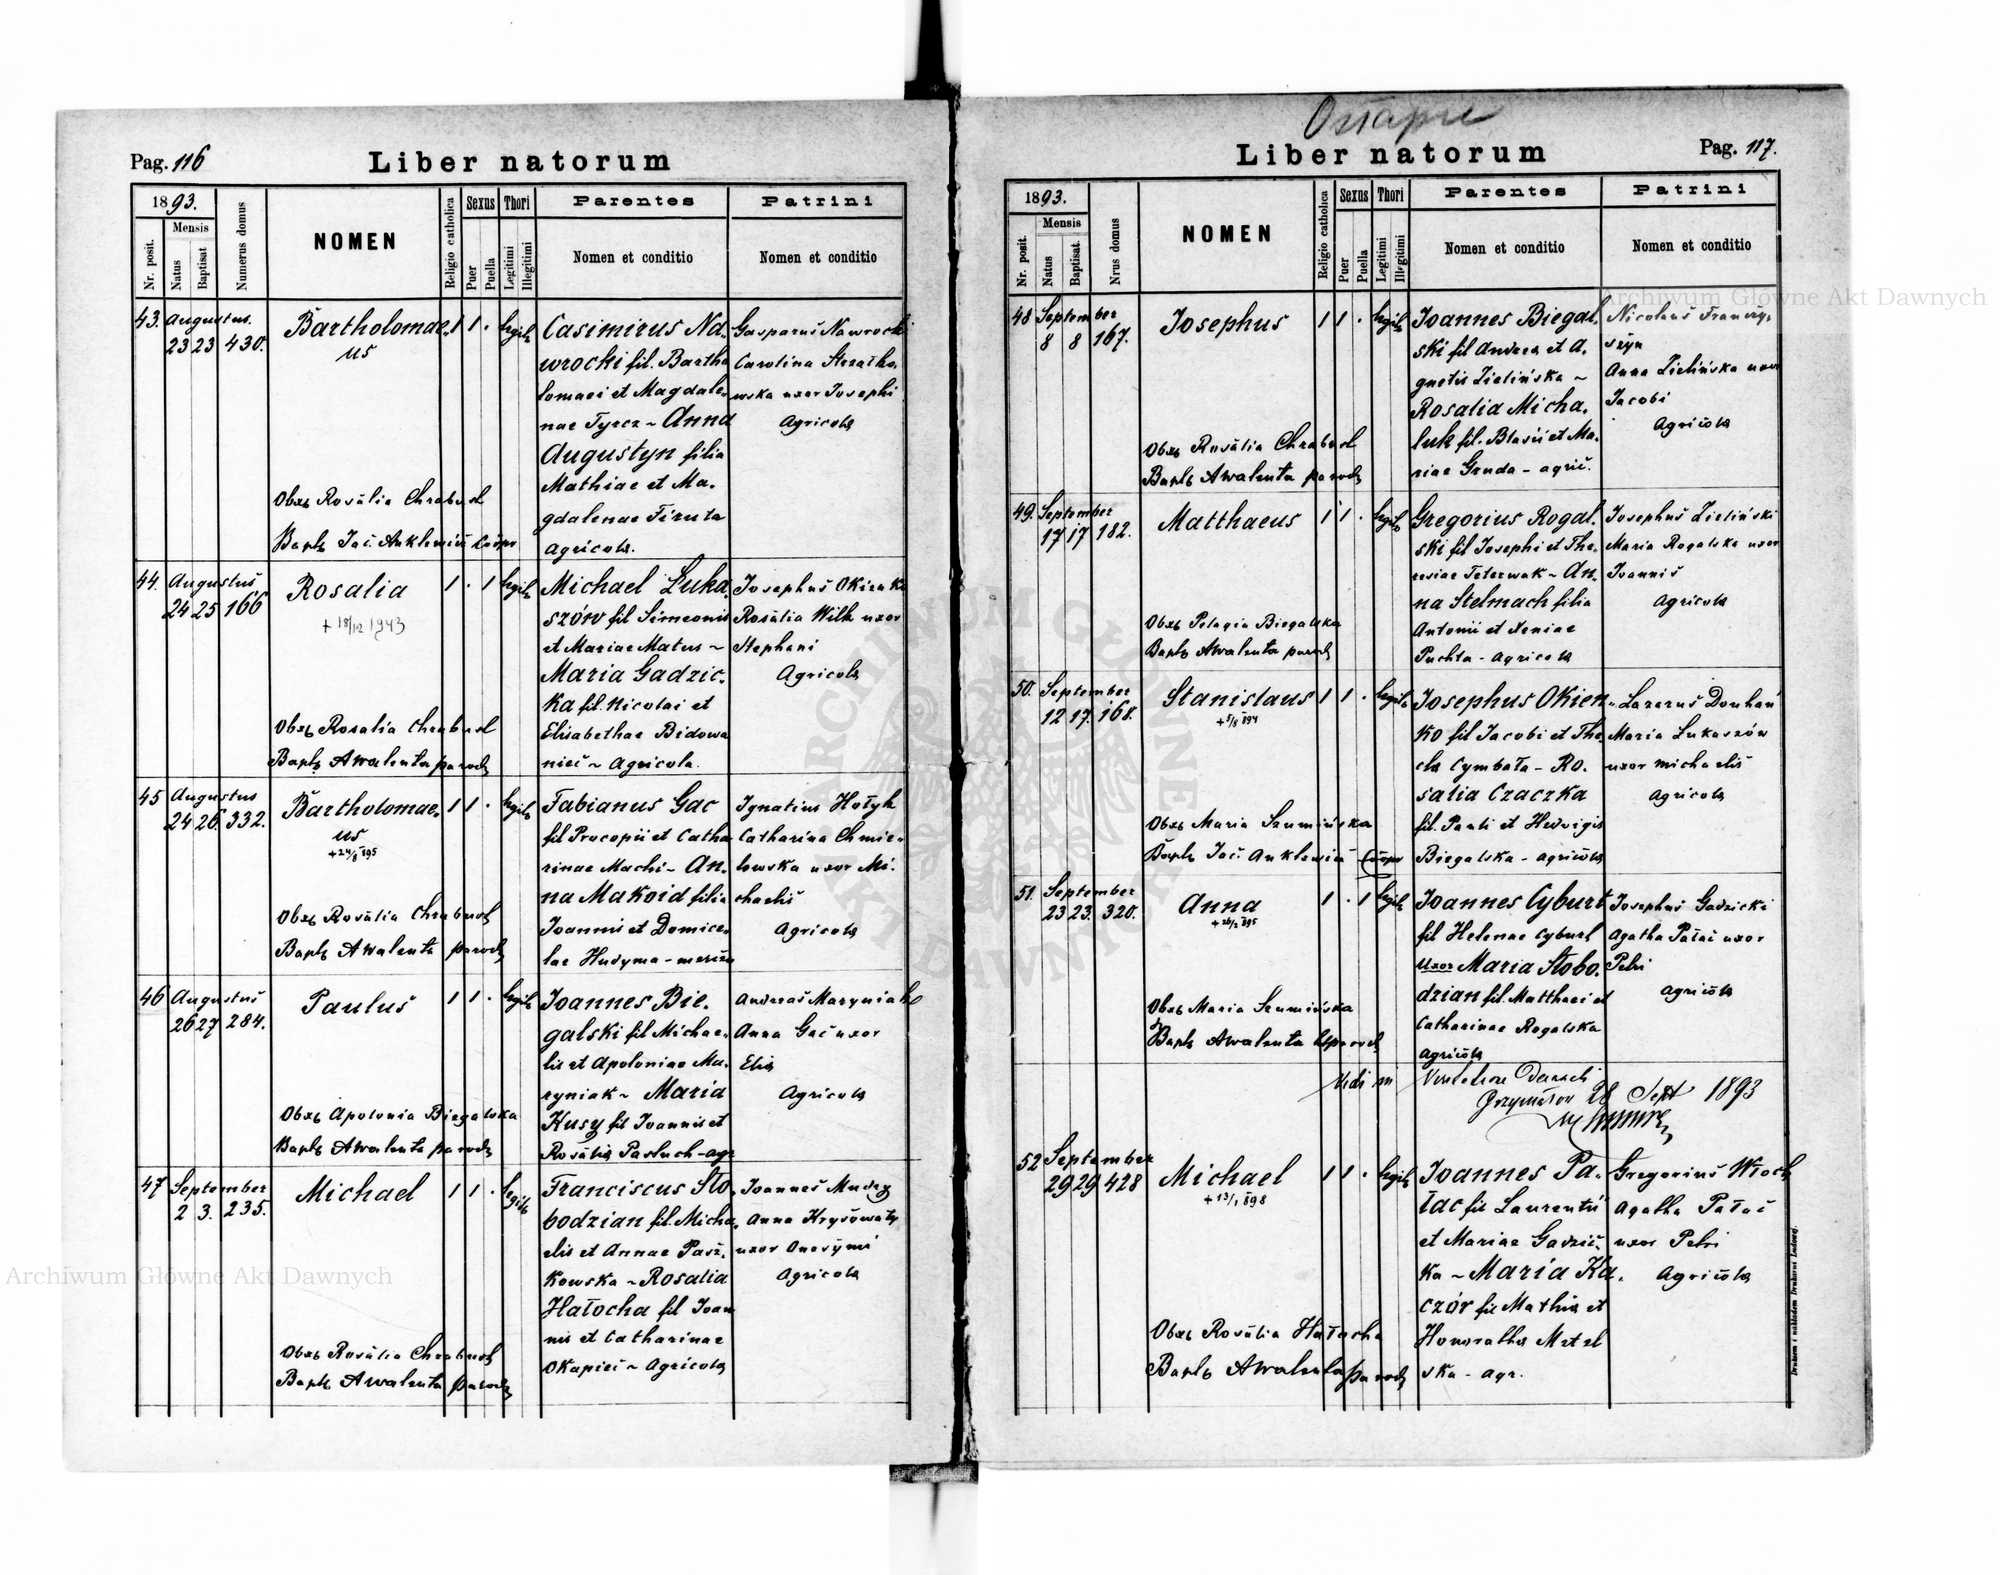 Pag. 116
Liber natorum
1893.
Mensis
Nr. posit.
Natus
Baptisat
Numerus domus
NOMEN
Religio catholica
Sexus
Puer
Puella
Thori
Legitimi
Illegitimi
Parentes
Nomen et conditio
Patrini
Nomen et conditio
43. Augustus.
23 23 430.
Bartholomae-
us
1 1 .
Obst Rosalia Chrabust
Casimirus Na-
wrocki fil. Bartho
lomaei et Magdale-
nae Tyrcz ~ Anna
Augustyn filia
Mathiae et Ma-
gdalenae Firuta
agricola.
Gasparus Nawrocki
Carolina Strzałko-
wska uxor Josephi
Agricola
44. Augustus
24 25 166
Rosalia
+ 18/12 1943
1 . 1
Obst Rosalia Chrabust
Michael Łuka-
szów fil Simeonis
et Mariae Matus ~
Maria Gadzic-
ka fil Nicolai et
Elisabethae Bidowa
nieć ~ Agricola.
Rosalia Wilk uxor
Stephani
Agricola
45 Augustus
24 26. 332.
Bartholomae-
us
+ 24/8 895
1 1 .
Obst Rosalia Chrabust
Fabianus Gac
fil Procopii et Catha
rinae Machi ~ An-
na Makoid filia
Joannis et Domice-
lae Hudyma
Ignatius Hołyk
Catharina Chmie-
lowska uxor Mi-
chaelis
Agricola
46 Augustus
26 27 284.
Paulus
1 1 .
Obst Apolonia Biegalska
Joannes Bie-
galski fil Michae-
lis et Apoloniae Ma-
ryniak ~ Maria
Kusy fil Joannis et
Rosalia Pastuch - agr
Andreas Maryniak
Anna Gac uxor
Elia
Agricola
47 September
2 3. 235.
Michael
1 1 .
Obst Rosalia Chrabust
Franciscus Sło-
bodzian fil. Micha-
elis et Annae Pasz-
kowska ~ Rosalia
Hałocha fil Joan
nis et Catharinae
Okapieć ~ Agricola
Joannes Mudry
Anna Krysowaty
uxor Onesymi
Agricola
Ostapie
Liber natorum
Pag. 117.
1893.
Mensis
Nr. posit.
Natus
Baptisat.
Nrus domus
NOMEN
Religio catholica
Sexus
Puer
Puella
Thori
Legitimi
Illegitimi
Parentes
Nomen et conditio
Patrini
Nomen et conditio
Archiwum Główne Akt Dawnych
48 September
8 8 167.
Josephus
1 1 .
Obst Rosalia Chrabust
Joannes Biegal-
ski fil Andrea et A-
gnetis Zielińska ~
Rosalia Micha-
luk fil. Blasii et Ma-
riae Gruda - agric.
Nicolaus Franczy-
szyn
Anna Zielińska uxor
Jacobi
Agricola
49. September
17 17 182.
Matthaeus
1 1 .
Obst Pelagia Biegalska
Gregorius Rogal-
ski fil Josephi et The-
resiae Teterwak ~ An-
na Stelmach filia
Antonii et Xeniae
Puchta - agricola
Josephus Zieliński
Maria Rogalska uxor
Joannis
Agricola
50. September
12 17. 168.
Stanislaus
+ 5/8 894
1 1 .
Obst Maria Szumińska
Josephus Okien-
ko fil Jacobi et The-
cla Cymbała - Ro-
salia Czaczka
fil. Pauli et Hedvigis
Biegalska - agricola
Lazarus Douhań
Maria Łukaszów
uxor Michaelis
Agricola
51. September
23 23. 320.
Anna
1 . 1
Obst Maria Szumińska
Joannes Cyburt
fil Helenae Cyburt
uxor Maria Słobo-
dzian fil. Matthaei et
Catharinae Rogalska
agricola
Josephus Gadzicki
Agatha Pałac uxor
Petri
Agricola
Vidi in
Grzymałów 28 Sept 1893
52 September
29 29 428
Michael
+ 13/1 898
1 1 .
Obst Rosalia Hałocha
Joannes Pa-
łac fil Laurentii
et Mariae Gadzic-
ka ~ Maria Ka-
czór fil Mathia et
Honoratha Metel
ska - agr.
Gregorius Włoch
Agatha Pałac
uxor Petri
Agricola
Drukiem i nakładem Drukarni Ludowej.
Archiwum Główne Akt Dawnych
ARCHIWUM GŁÓWNE AKT DAWNYCH